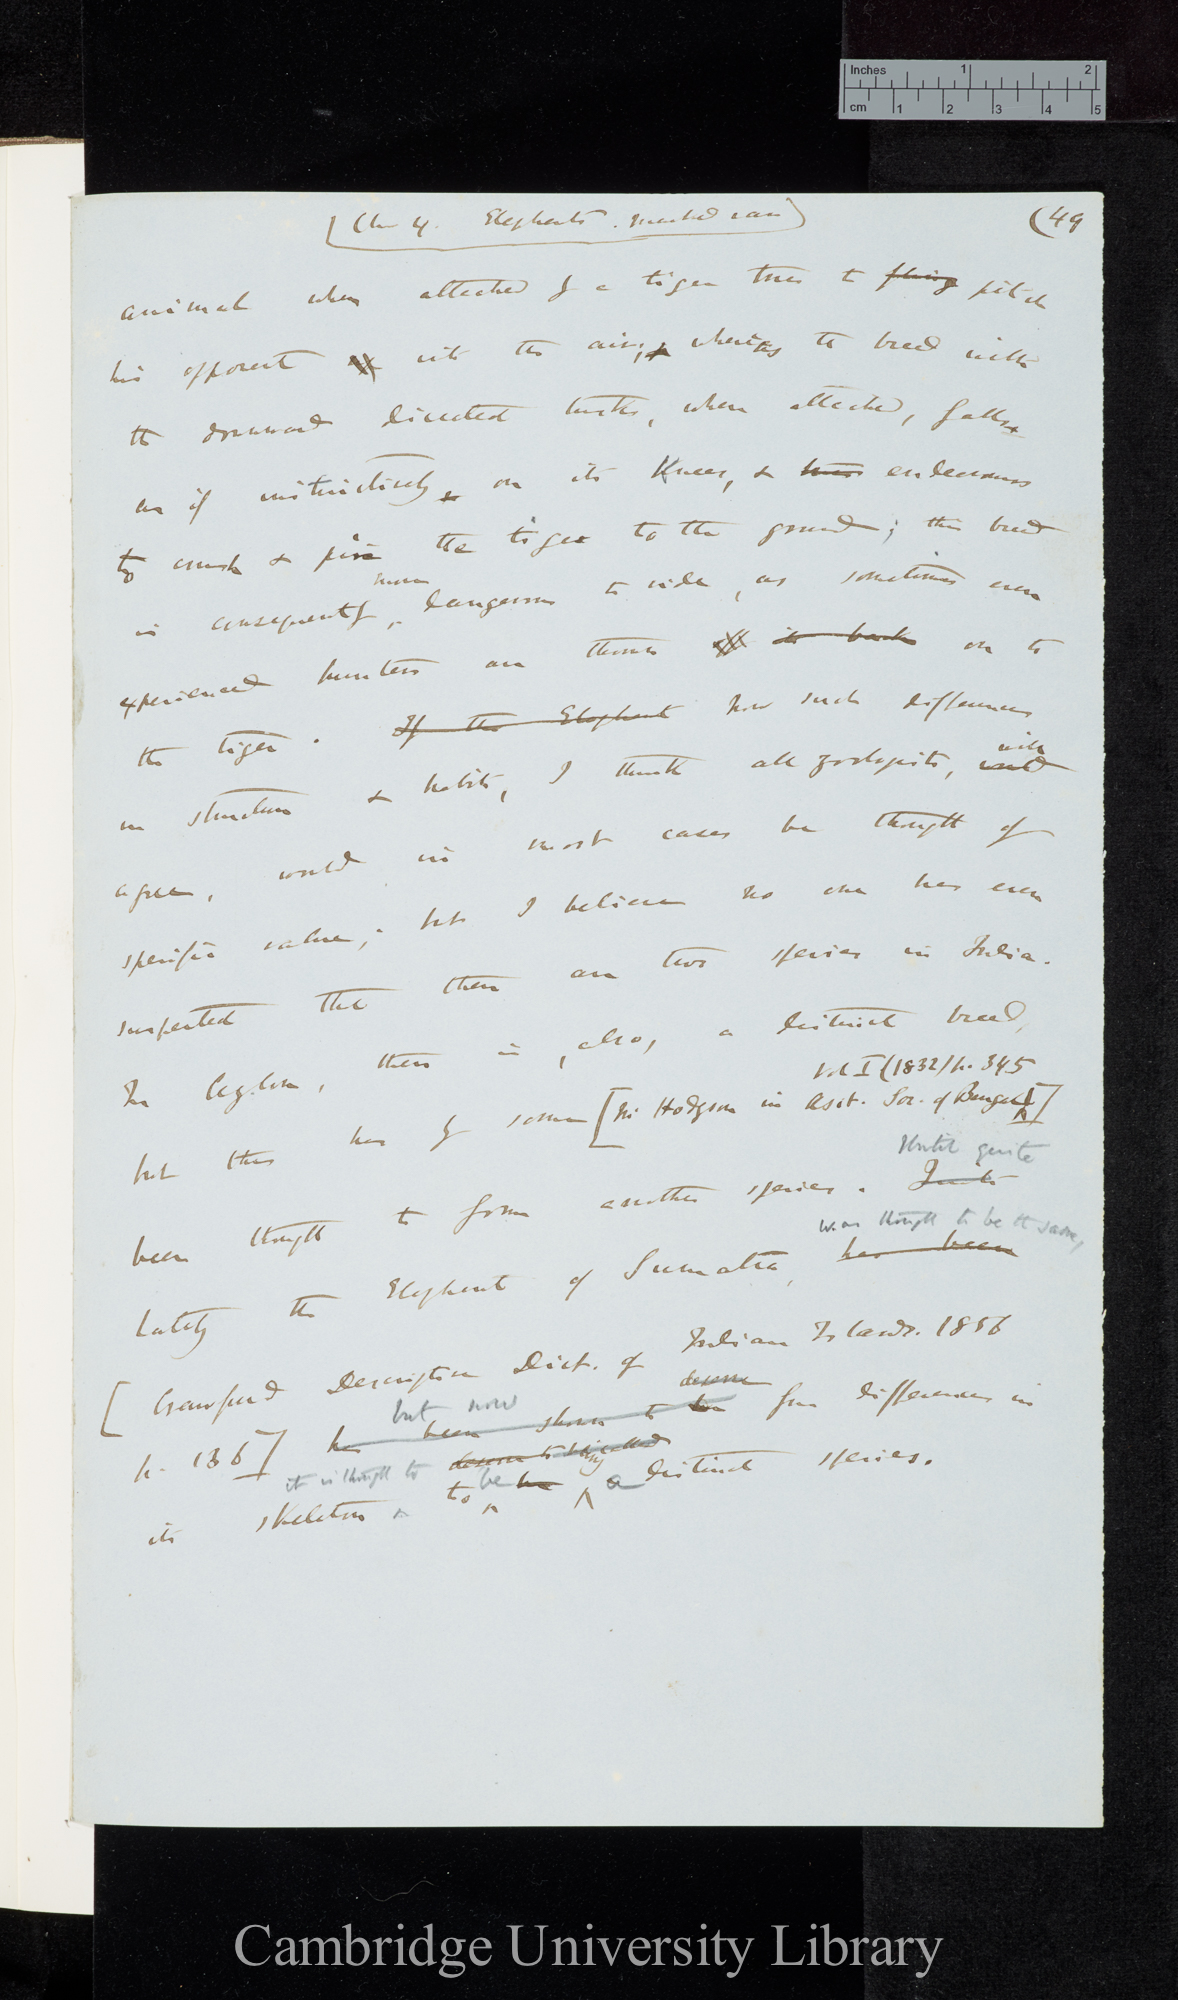 Inches 1 2
cm 1 2 3 4 5
[Ch 4. Elephants. marked races]
(49
animal when attacked by a tiger tries to fling pitch
his opponent into the air; whereas the breed with
the downward directed tusks, when attacked, falls,
as if instinctively, on its knees, & tries endeavours
to crush & pin the tiger to the ground; this breed
more
is consequently dangerous to ride, as sometimes even
experienced hunters are thrown its back on to
the tiger. If the Elephant Now such differences
will
in structure & habits, I think all zoologists,
agree, would in most cases be thought of
specific value; but I believe no one has ever
suspected that there are two species in India.
In Ceylon, there is, also, a distinct breed,
Vol I (1832) p. 345
but this has by some [Mr Hodgson in Asit. Soc. of Bengal]
Until quite
been thought to form another species. Until
was thought to be the same,
Lately the Elephant of Sumatra, has been
[Crawfurd Descriptive Dict. of Indian Islands. 1856
but now
deserve
p. 136] has been shown to be from differences in
it is thought to
deserve to being called
its skeleton to be be a distinct species.
Cambridge University Library